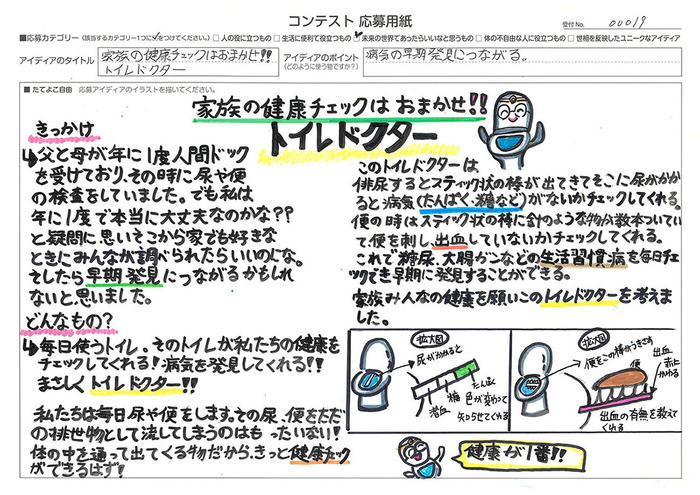 コンテスト 応募用紙
受付No. 00019
■応募カテゴリー（該当するカテゴリー1つに✓をつけてください。） □人の役に立つもの □生活に便利で役立つもの ☑未来の世界であったらいいなと思うもの □体の不自由な人に役立つもの □世相を反映したユニークなアイディア
アイディアのタイトル
家族の健康チェックはおまかせ!!
トイレドクター
アイディアのポイント
（どのように使う物ですか?）
病気の早期発見につながる。
■たてよこ自由 応募アイディアのイラストを描いてください。
家族の健康チェックはおまかせ!!
トイレドクター
きっかけ
↳父と母が年に1度人間ドック
を受けており、その時に尿や便
の検査をしていました。でも私は
年に1度で本当に大丈夫なのかな??
と疑問に思いそこから家でも好きな
ときにみんなが調べられたらいいのにな。
そしたら早期発見につながるかもしれ
ないと思いました。
どんなもの?
↳毎日使うトイレ。そのトイレが私たちの健康を
チェックしてくれる!病気を発見してくれる!!
まさしくトイレドクター!!
私たちは毎日尿や便をします。その尿、便をただ
の排せ物として流してしまうのはもったいない!
体の中を通って出てくる物だから、きっと健康チェック
ができるはず!
このトイレドクターは
排尿するとスティック状の棒が出てきてそこに尿がかか
ると病気(たんぱく、糖など)がないかチェックしてくれる。
便の時はスティック状の棒に針のような物が数本ついてい
て便を刺し、出血していないかチェックしてくれる。
これで糖尿、大腸ガンなどの生活習慣病を毎日チェ
ックでき早期に発見することができる。
家族みんなの健康を願いこのトイレドクターを考えま
した。
拡大図
尿がかかると
たんぱく
糖
潜血
色が変わって
知らせてくれる
拡大図
便をこの棒がうきさす
便
出血
赤に
かわる
出血の有無を教えて
くれる
健康が1番!!